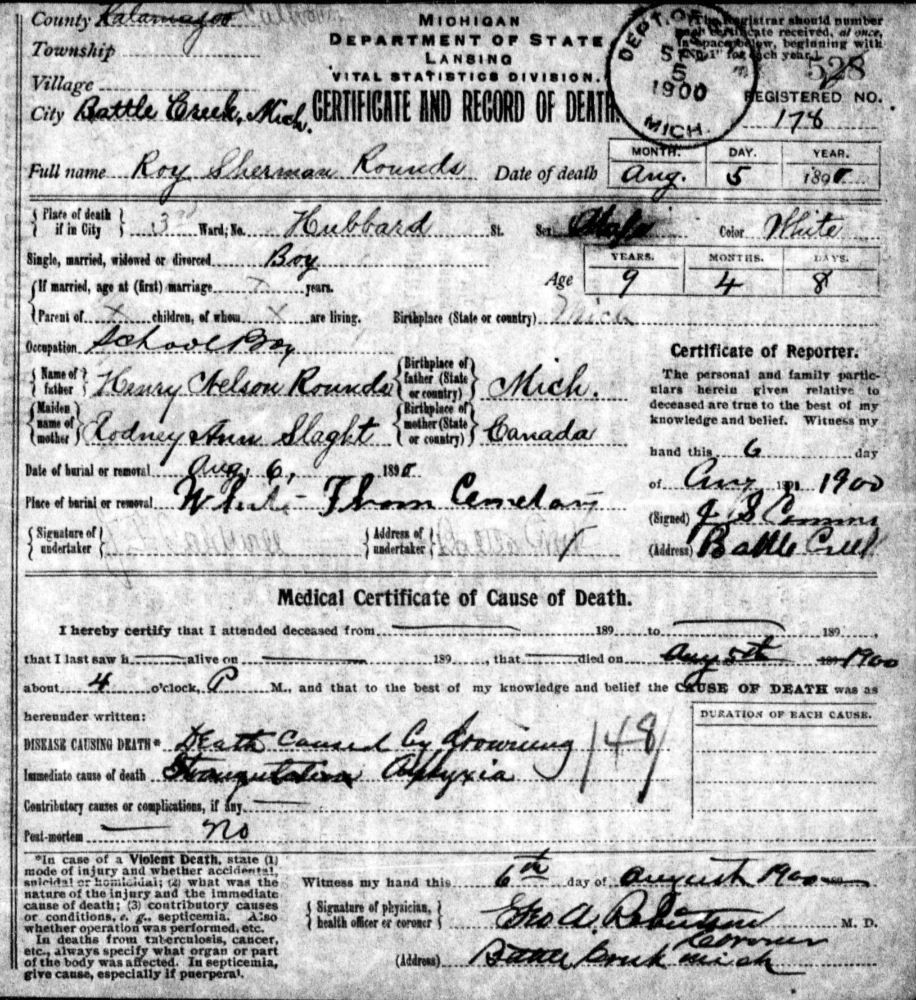 County Kalamazoo Calhoun
Township
Village
City Battle Creek, Mich.
MICHIGAN
DEPARTMENT OF STATE
LANSING
VITAL STATISTICS DIVISION.
CERTIFICATE AND RECORD OF DEATH
DEPT. OF STATE
SEP
5
1900
MICH.
The Registrar should number
each certificate received, at once,
in space below, beginning with
"No. 1" for each year.
528
REGISTERED NO.
178
Full name Roy Sherman Rounds Date of death
MONTH. DAY. YEAR.
Aug. 5 1890
Place of death if in City 3rd Ward; No. Hubbard St. Sex Male Color White
Single, married, widowed or divorced Boy
Age
YEARS. MONTHS. DAYS.
9 4 8
If married, age at (first) marriage years.
Parent of X children, of whom X are living. Birthplace (State or country) Mich
Occupation School Boy
Name of father Henry Nelson Rounds Birthplace of father (State or country) Mich.
Maiden name of mother Rodney Ann Slaght Birthplace of mother (State or country) Canada
Date of burial or removal Aug. 6, 1890
Place of burial or removal White Thorn Cemetary
Signature of undertaker Address of undertaker
Certificate of Reporter.
The personal and family partic-
ulars herein given relative to
deceased are true to the best of my
knowledge and belief. Witness my
hand this 6 day
of Aug 1900
(Signed) J. S.
(Address) Battle Creek
Medical Certificate of Cause of Death.
I hereby certify that I attended deceased from 189 to 189 ,
that I last saw h alive on 189 , that died on Aug 5th 1900
about 4 o'clock, P M., and that to the best of my knowledge and belief the CAUSE OF DEATH was as
hereunder written:
DURATION OF EACH CAUSE.
DISEASE CAUSING DEATH* Death caused by drowning 148
Immediate cause of death Strangulation Aspyxia
Contributory causes or complications, if any.
Post-mortem no
*In case of a Violent Death, state (1)
mode of injury and whether accidental,
suicidal or homicidal; (2) what was the
nature of the injury and the immediate
cause of death; (3) contributory causes
or conditions, e. g., septicemia. Also
whether operation was performed, etc.
In deaths from tuberculosis, cancer,
etc., always specify what organ or part
of the body was affected. In septicemia,
give cause, especially if puerperal.
Witness my hand this 6th day of August 1900
Signature of physician, health officer or coroner Geo A. Robertson M. D.
Coroner
(Address) Battle Creek Mich